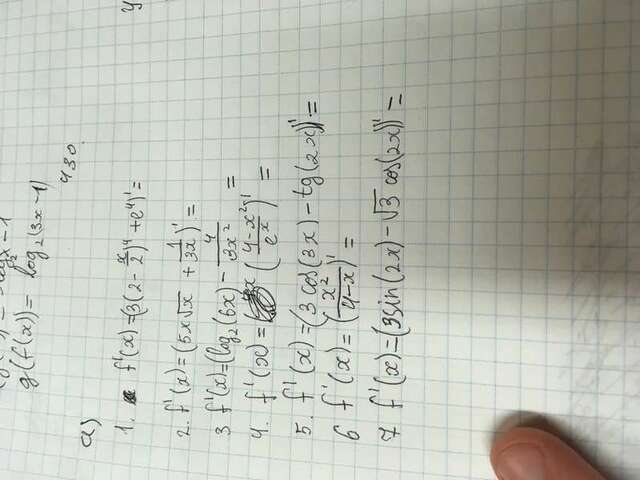 g(f(x)) = log₂(3x-1)
430.
a)
1. f'(x)=(3(2-x/2)⁴+e⁴)'=
2. f'(x)=(5x√x + 1/3x)'=
3 f'(x)=(log₂(6x) - 4/3x² =
4. f'(x) = (4-x²/eˣ)' =
5. f'(x)=(3 cos(3x)-tg(2x))'=
6 f'(x)=(x²/4-x)'=
7 f'(x)=(3sin(2x)-√3 cos(2x))'=